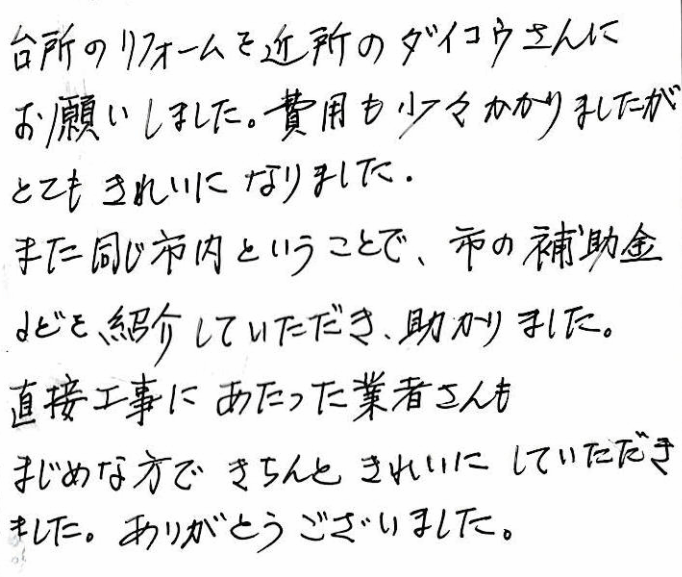 台所のリフォームを近所のダイコウさんに
お願いしました。費用も少々かかりましたが
とてもきれいになりました。
また同じ市内ということで、市の補助金
などを、紹介していただき、助かりました。
直接工事にあたった業者さんも
まじめな方できちんときれいにしていただき
ました。ありがとうございました。